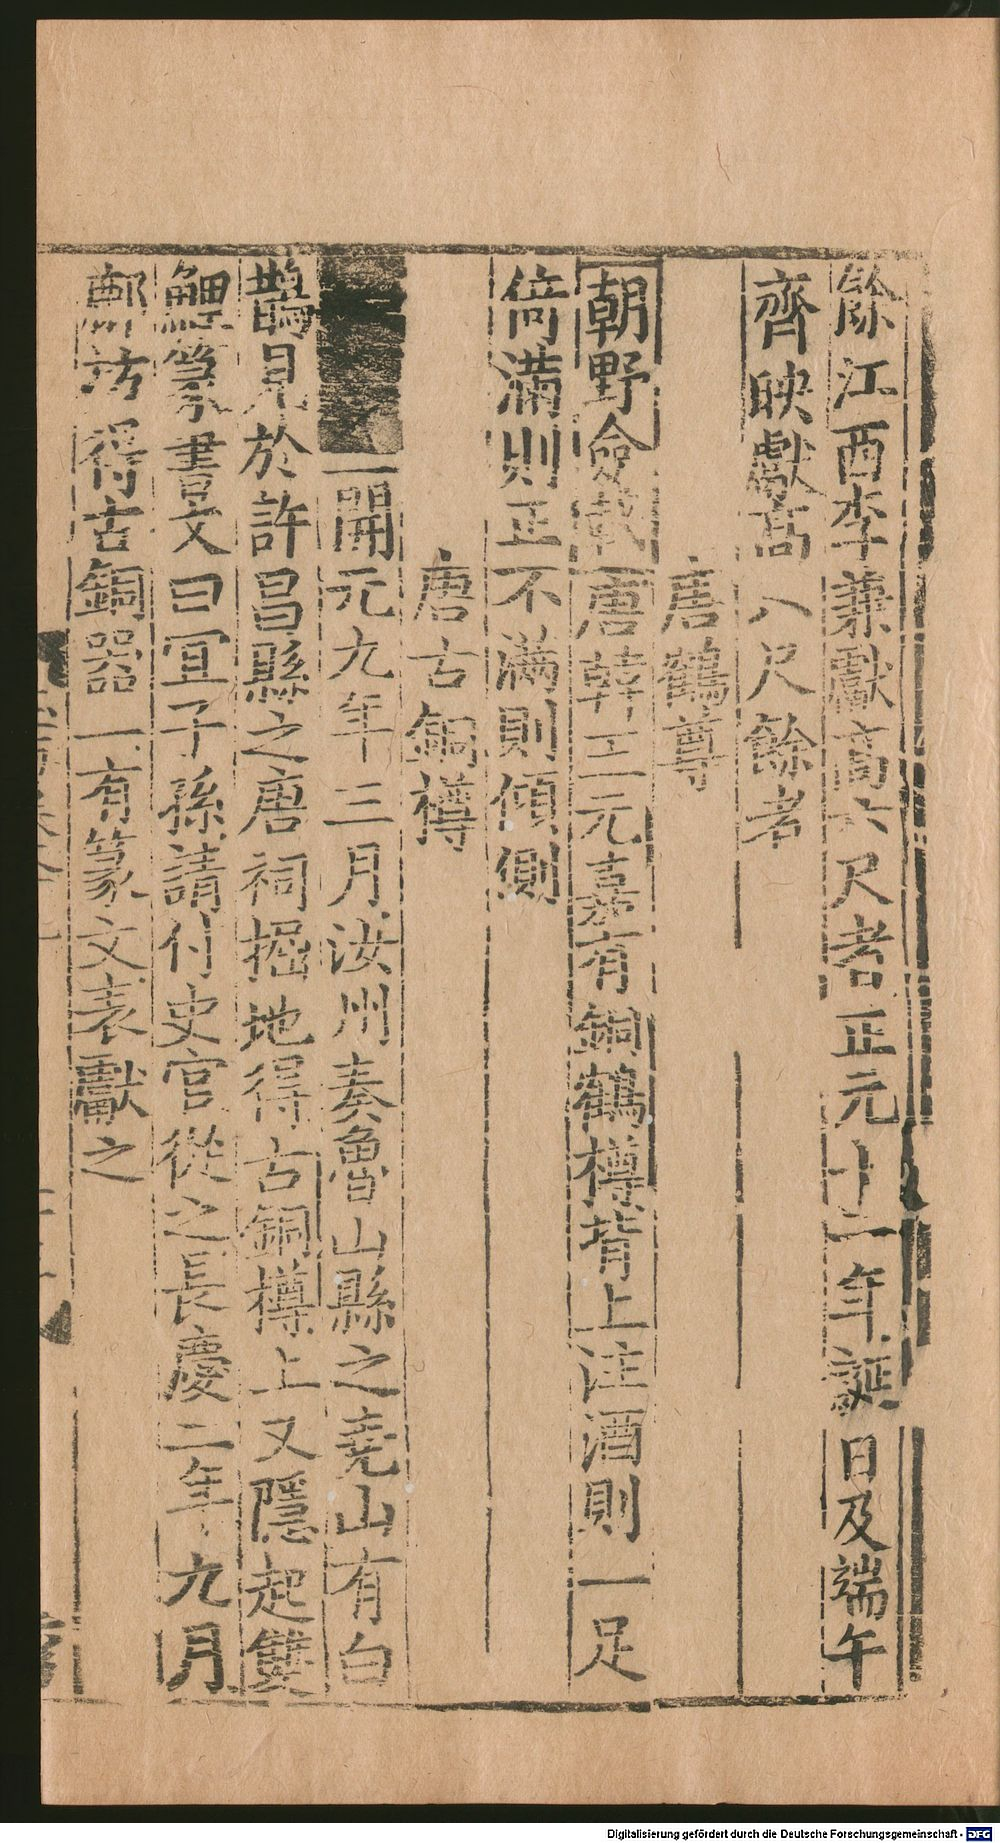 餘江西李兼獻高六尺者正元十二年誕日及端午
齊映獻高八尺餘者
唐鶴尊
朝野僉載唐韓王元嘉有銅鶴樽背上注酒則一足
倚滿則正不滿則傾側
唐古銅樽
開元九年三月汝州奏魯山縣之堯山有白
鵲見於許昌縣之唐祠掘地得古銅樽上又隱起雙
鯉篆書文曰宜子孫請付史官從之長慶二年九月
鄜坊得古銅器一有篆文表獻之
Digitalisierung gefördert durch die Deutsche Forschungsgemeinschaft - DFG